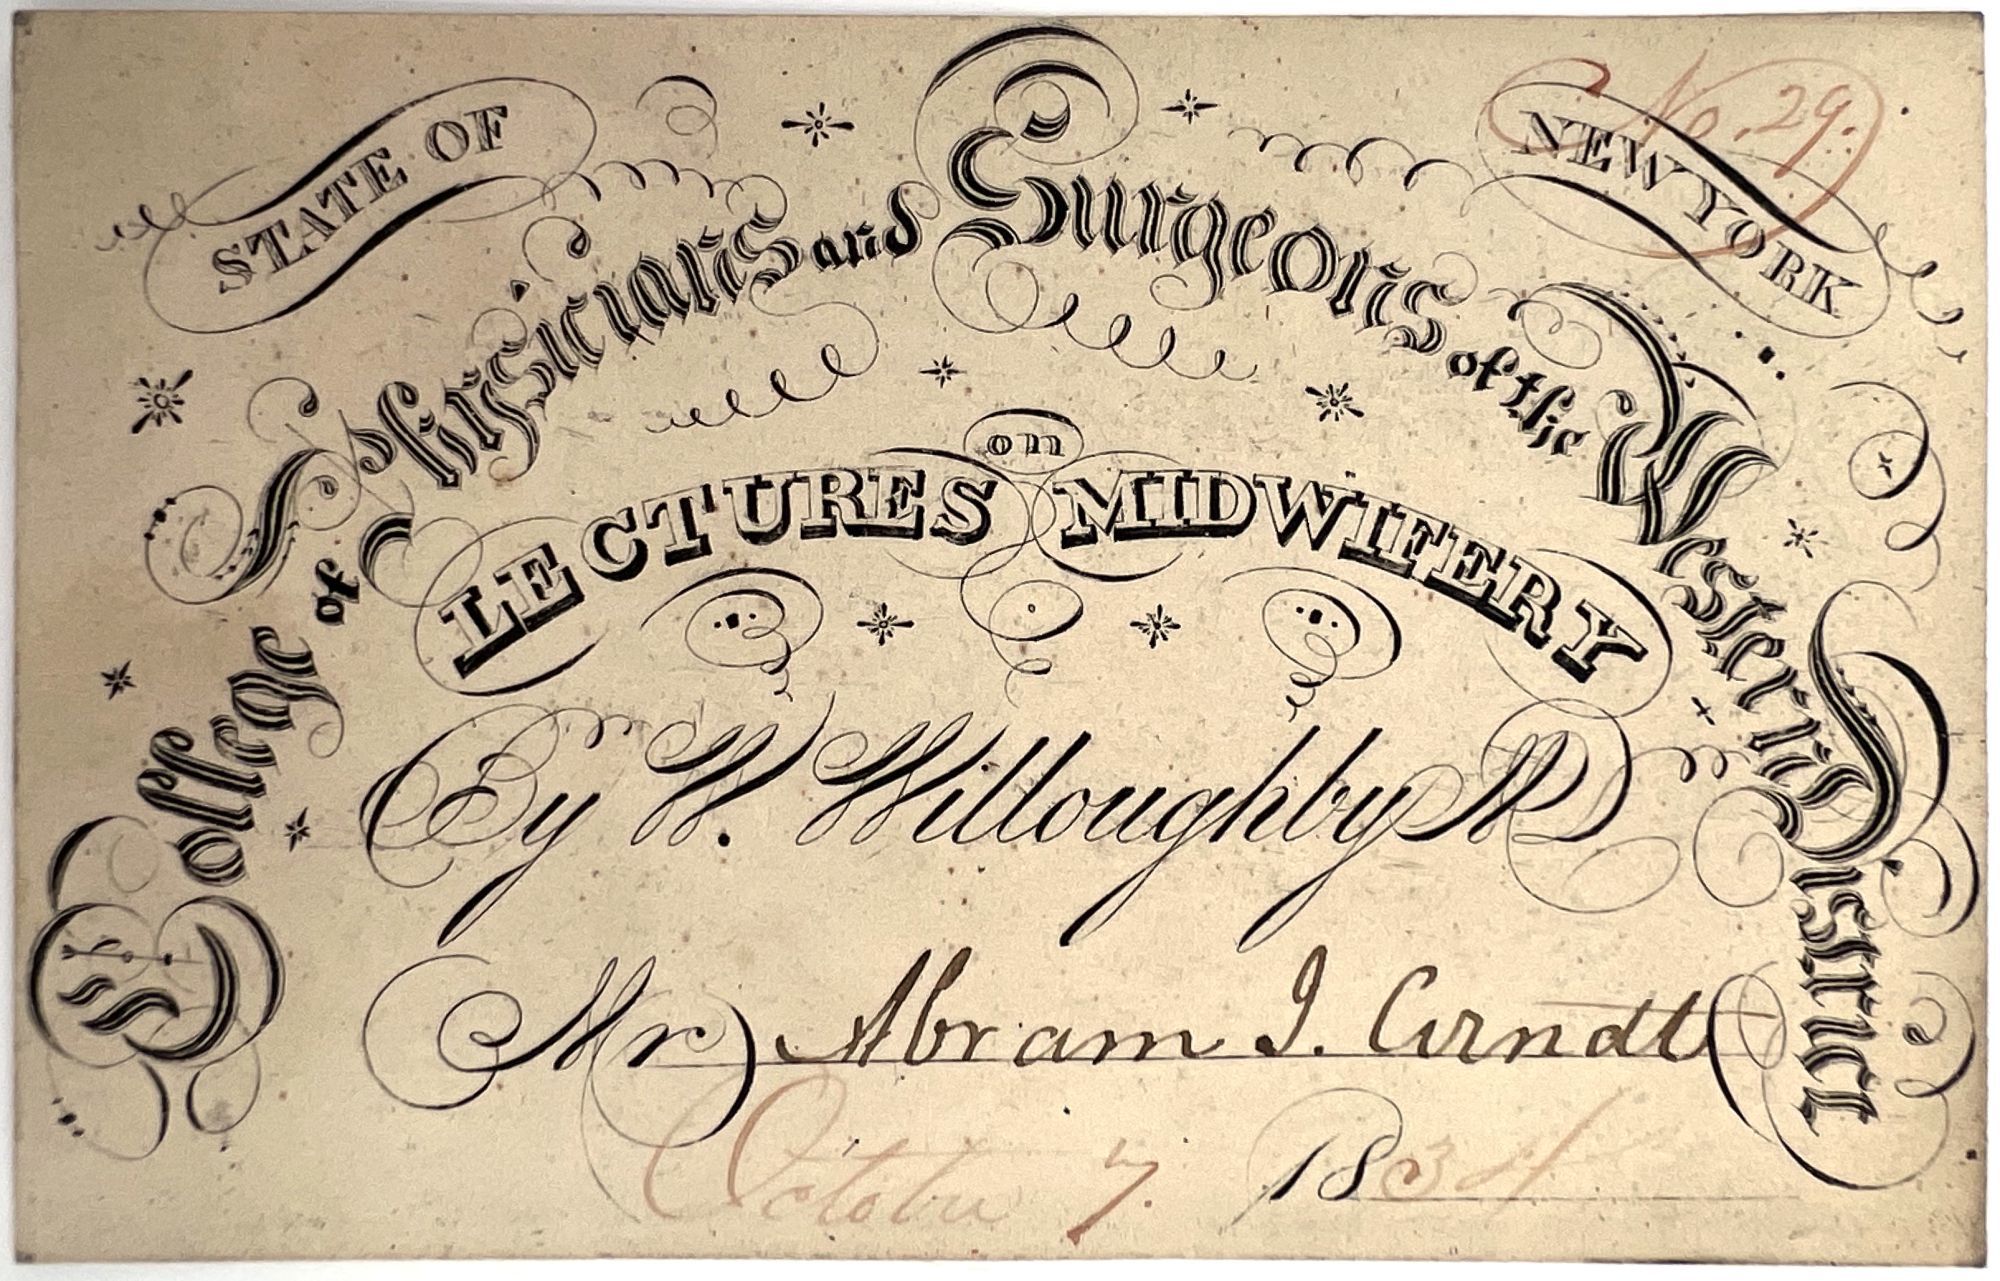 No. 29.
STATE OF NEW YORK
College of Physicians and Surgeons of the Western District
LECTURES on MIDWIFERY
By W. Willoughby MD
Mr Abram I. Arndt
October 7. 1834